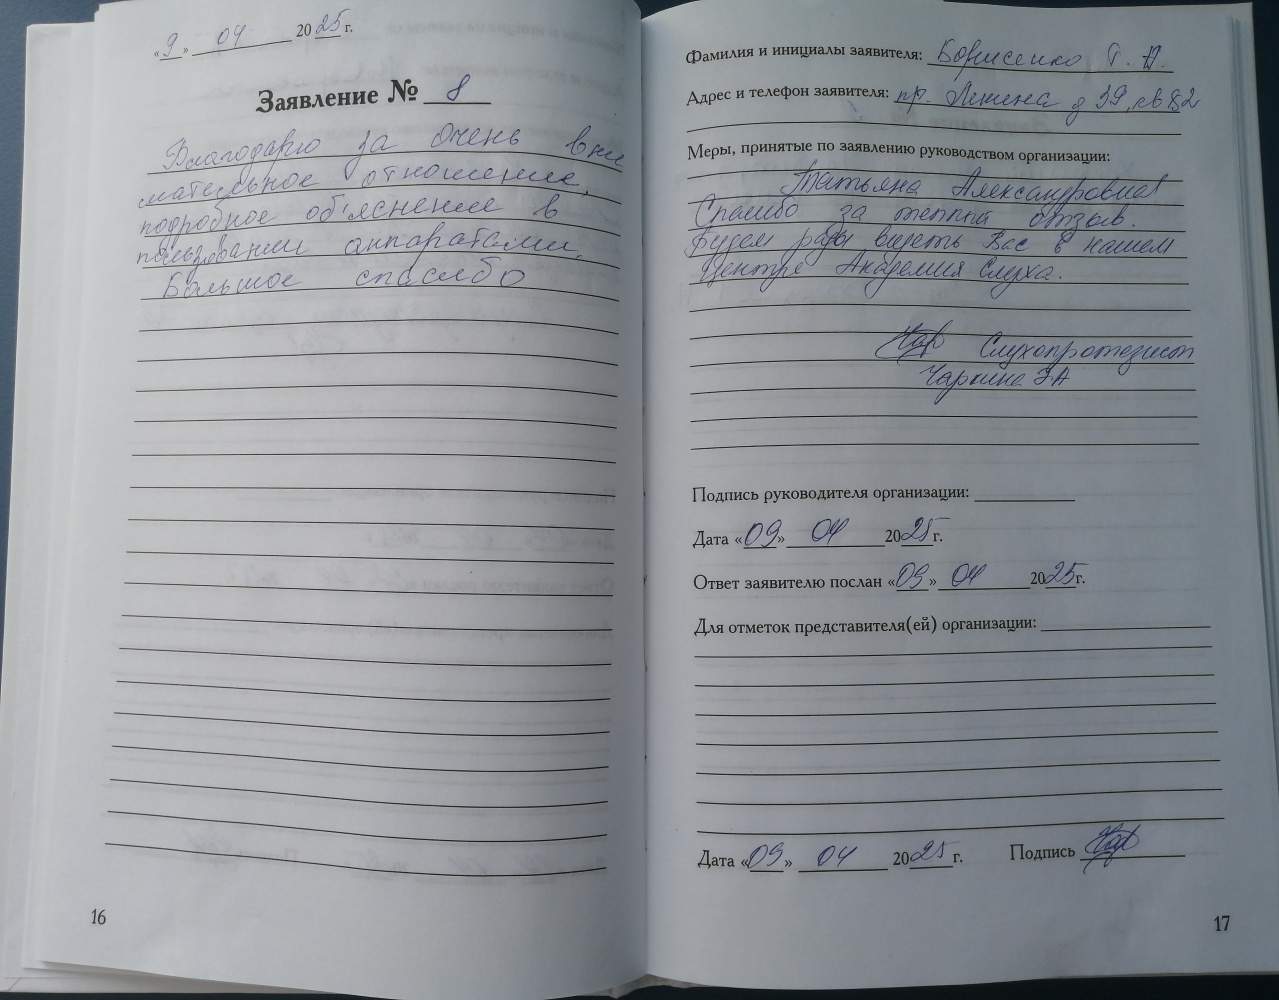 «9» 04 2025 г.
Заявление № 8
Благодарю за очень вни
мательное отношение,
подробное объяснение в
пользовании аппаратами.
Большое спасибо
16
Фамилия и инициалы заявителя: Борисенко Т. А.
Адрес и телефон заявителя: пр. Ленина д 39, кв 82
Меры, принятые по заявлению руководством организации:
Татьяна Александровна!
Спасибо за теплый отзыв.
Будем рады видеть Вас в нашем
Центре Академия Слуха.
Слухопротезист
Чаркина Э А
Подпись руководителя организации:
Дата «09» 04 2025 г.
Ответ заявителю послан «09» 04 2025 г.
Для отметок представителя(ей) организации:
Дата «09» 04 2025 г. Подпись
17